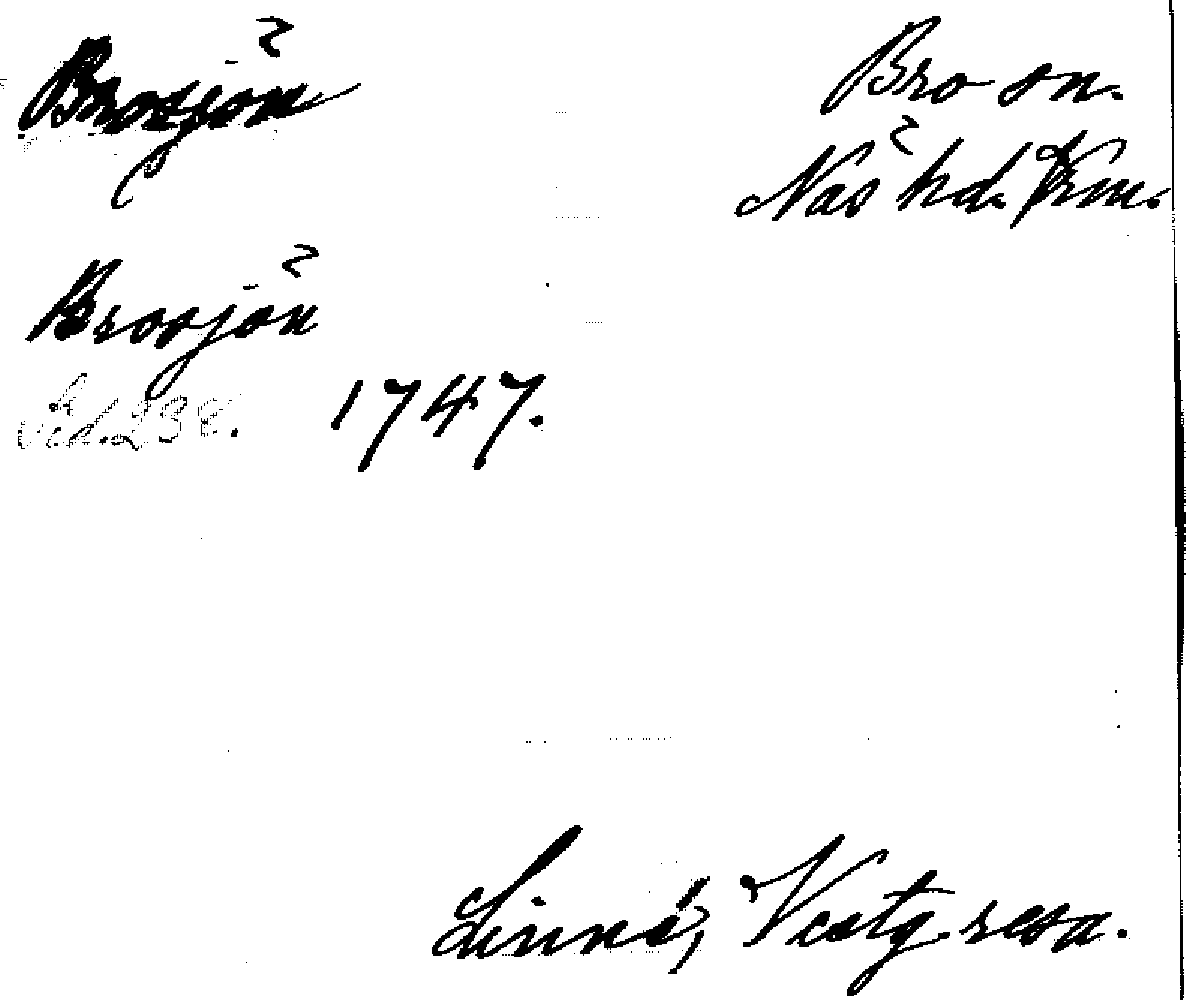 Brosjön
Bro sn.
Näs hd. Vrm.
Brosjön
Sid. 238. 1747.
Linné, Vestg. resa.